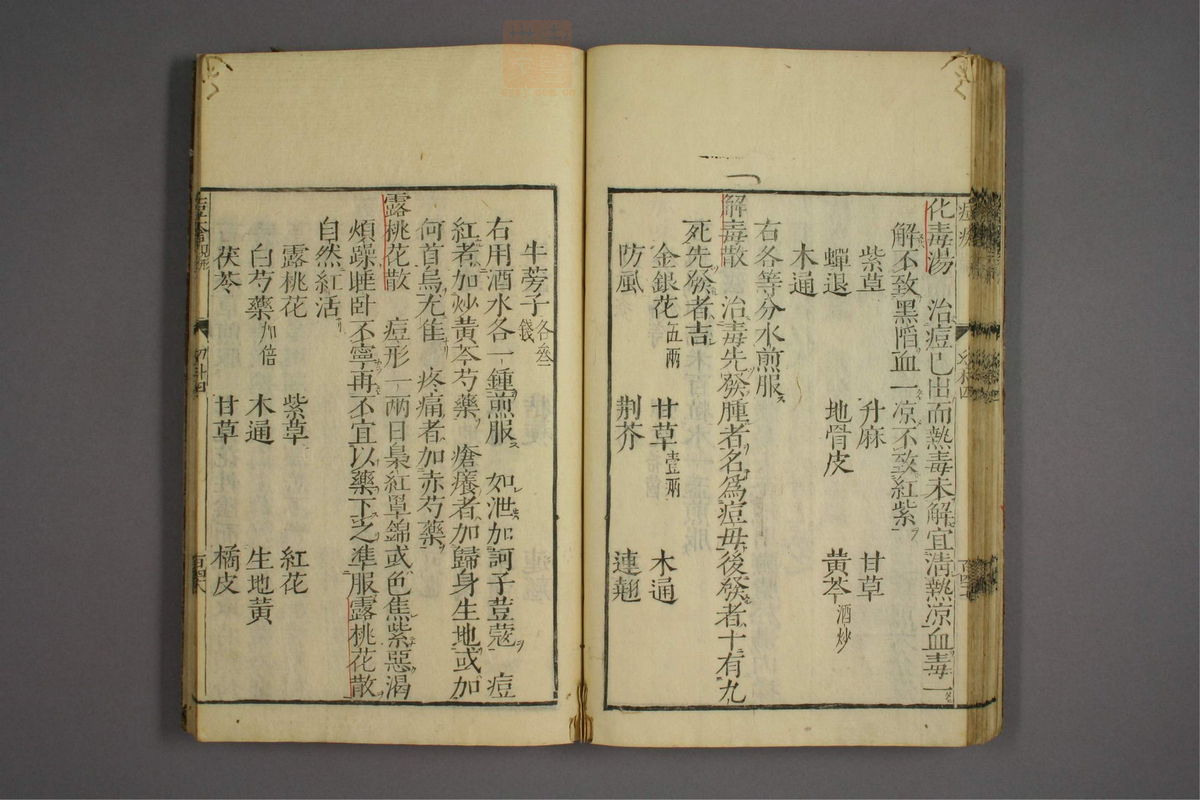 化毒湯　治痘已出而熱毒未解宜清熱凉血毒一
解不致黑䧟血一凉不致紅紫
紫草　升麻　甘草
蟬退　地骨皮　黄芩酒炒
木通
右各等分水煎服
解毒散　治毒先發腫者名爲痘毋後發者十有九
死先發者吉
金銀花伍兩　甘草壹兩　木通
防風　荆芥　連翹
牛蒡子各叁錢
右用酒水各一鍾煎服　如泄加訶子荳蔻　痘
紅者加炒黄芩芍藥　瘡癢者加歸身生地或加
何首烏尤佳　疼痛者加赤芍藥
露桃花散　痘形一兩日梟紅罩錦或色焦紫惡渴
煩躁睡卧不寧再不宜以藥下之準服露桃花散
自然紅活
露桃花　紫草　紅花
白芍藥加倍　木通　生地黄
茯苓　甘草　橘皮